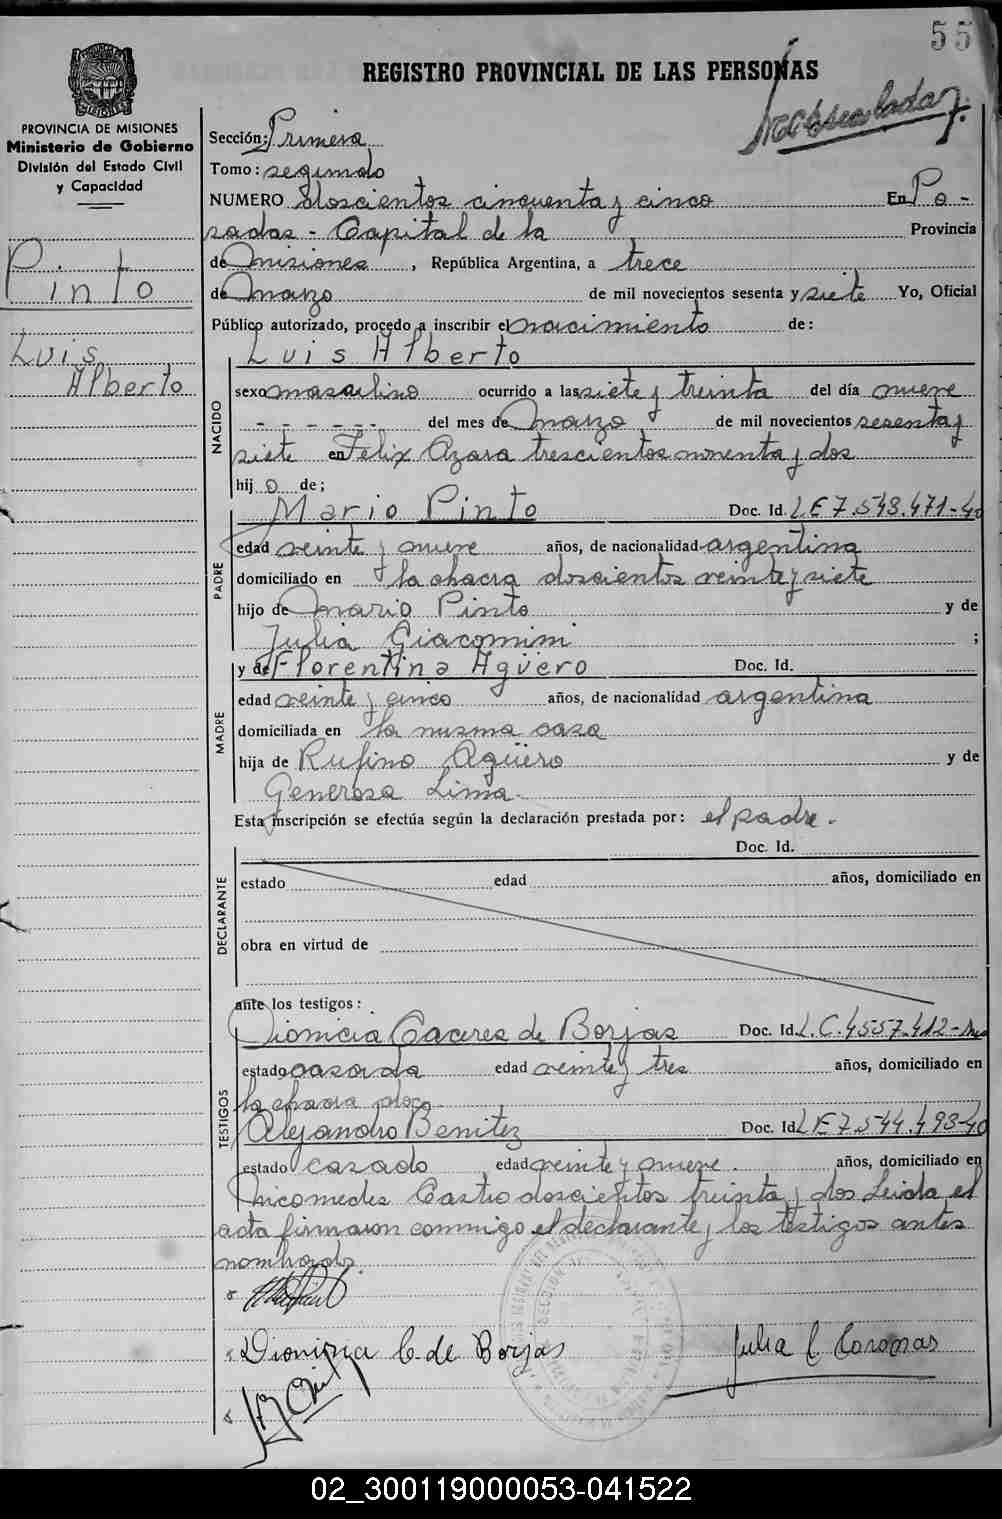 55
REGISTRO PROVINCIAL DE LAS PERSONAS
PROVINCIA DE MISIONES
Ministerio de Gobierno
División del Estado Civil
y Capacidad
Sección: Primera
Tomo: segundo
NUMERO doscientos cincuenta y cinco En Po-
sadas - Capital de la Provincia
de Misiones, República Argentina, a trece
de Marzo de mil novecientos sesenta y siete Yo, Oficial
Público autorizado, procedo a inscribir el nacimiento de:
Pinto
Luis
Alberto
NACIDO
Luis Alberto
sexo masculino ocurrido a las siete y treinta del día nueve
- - - - - - del mes de Marzo de mil novecientos sesenta y
siete en Felix Azara trescientos noventa y dos
hijo de;
PADRE
Mario Pinto Doc. Id. L E 7.543.471-40
edad veinte y nueve años, de nacionalidad argentina
domiciliado en la chacra doscientos veinte y siete
hijo de Mario Pinto y de
Julia Giacomini ;
MADRE
y de Florentina Agüero Doc. Id.
edad veinte y cinco años, de nacionalidad argentina
domiciliada en la misma casa
hija de Rufino Agüero y de
Generosa Lima.
Esta inscripción se efectúa según la declaración prestada por: el padre.
DECLARANTE
Doc. Id.
estado edad años, domiciliado en
obra en virtud de
ante los testigos:
TESTIGOS
Dionicia Caceres de Borjas Doc. Id. L.C. 4557.412-
estado casada edad veinte y tres años, domiciliado en
la chacra
Alejandro Benitez Doc. Id. L E 7.544.493-40
estado casado edad veinte y nueve. años, domiciliado en
Nicomedes Castro doscientos treinta y dos Leida el
acta firmaron conmigo el declarante y los testigos antes
nombrado.
Dionicia C. de Borjas
Julia Coronas
02_300119000053-041522